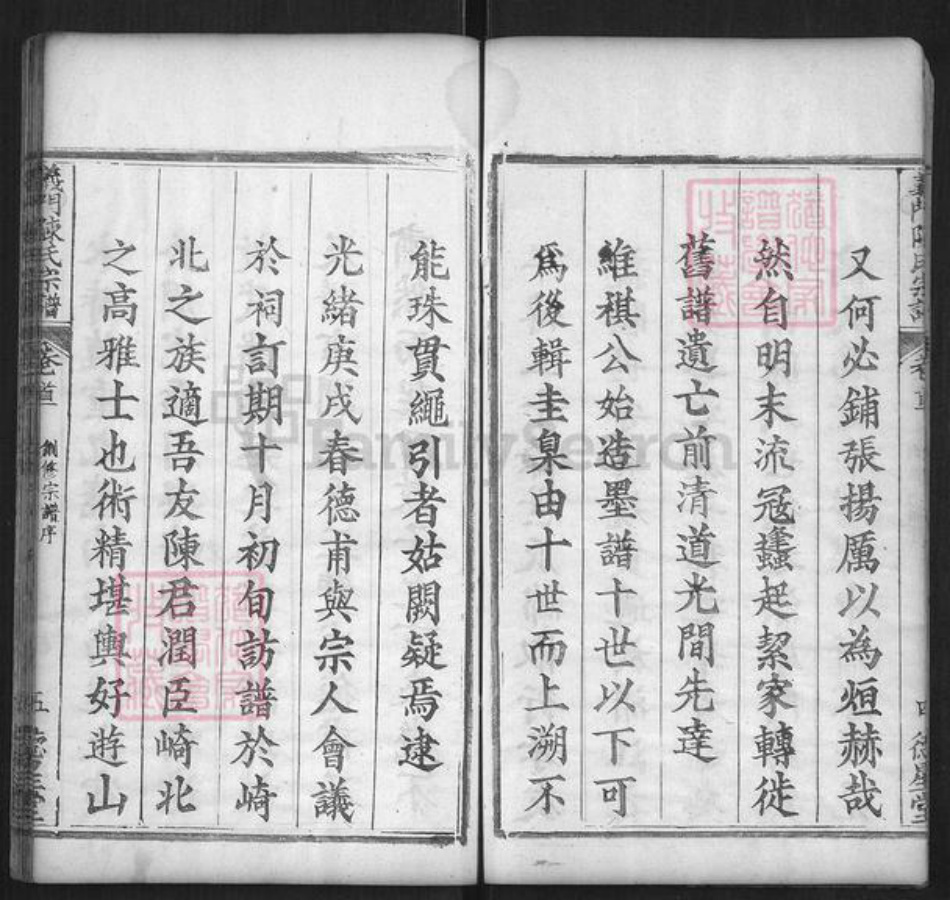 又何必鋪張揚厲以為烜赫哉
然自明末流冦蠭起絜家轉徙
舊譜遺亡前清道光間先達
維祺公始造墨譜十世以下可
為後輯圭臬由十世而上溯不
能珠貫繩引者姑闕疑焉逮
光緒庚戌春德甫與宗人會議
於祠訂期十月初旬訪譜於崎
北之族適吾友陳君潤臣崎北
之高雅士也術精堪輿好遊山
義門陳氏宗譜 卷首 創修宗譜序 五
FamilySearch